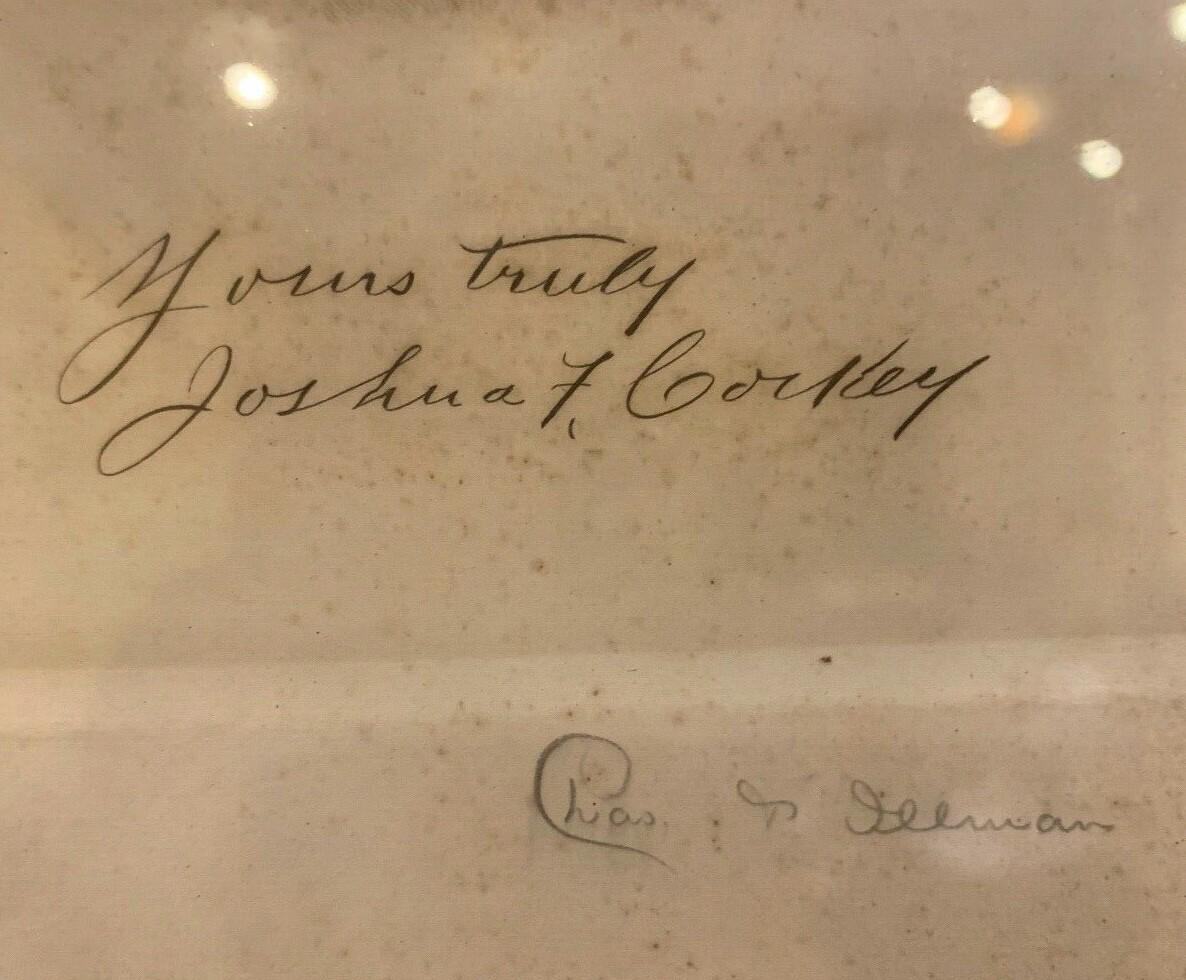 Yours truly
Joshua F. Cockey
Chas. Illman